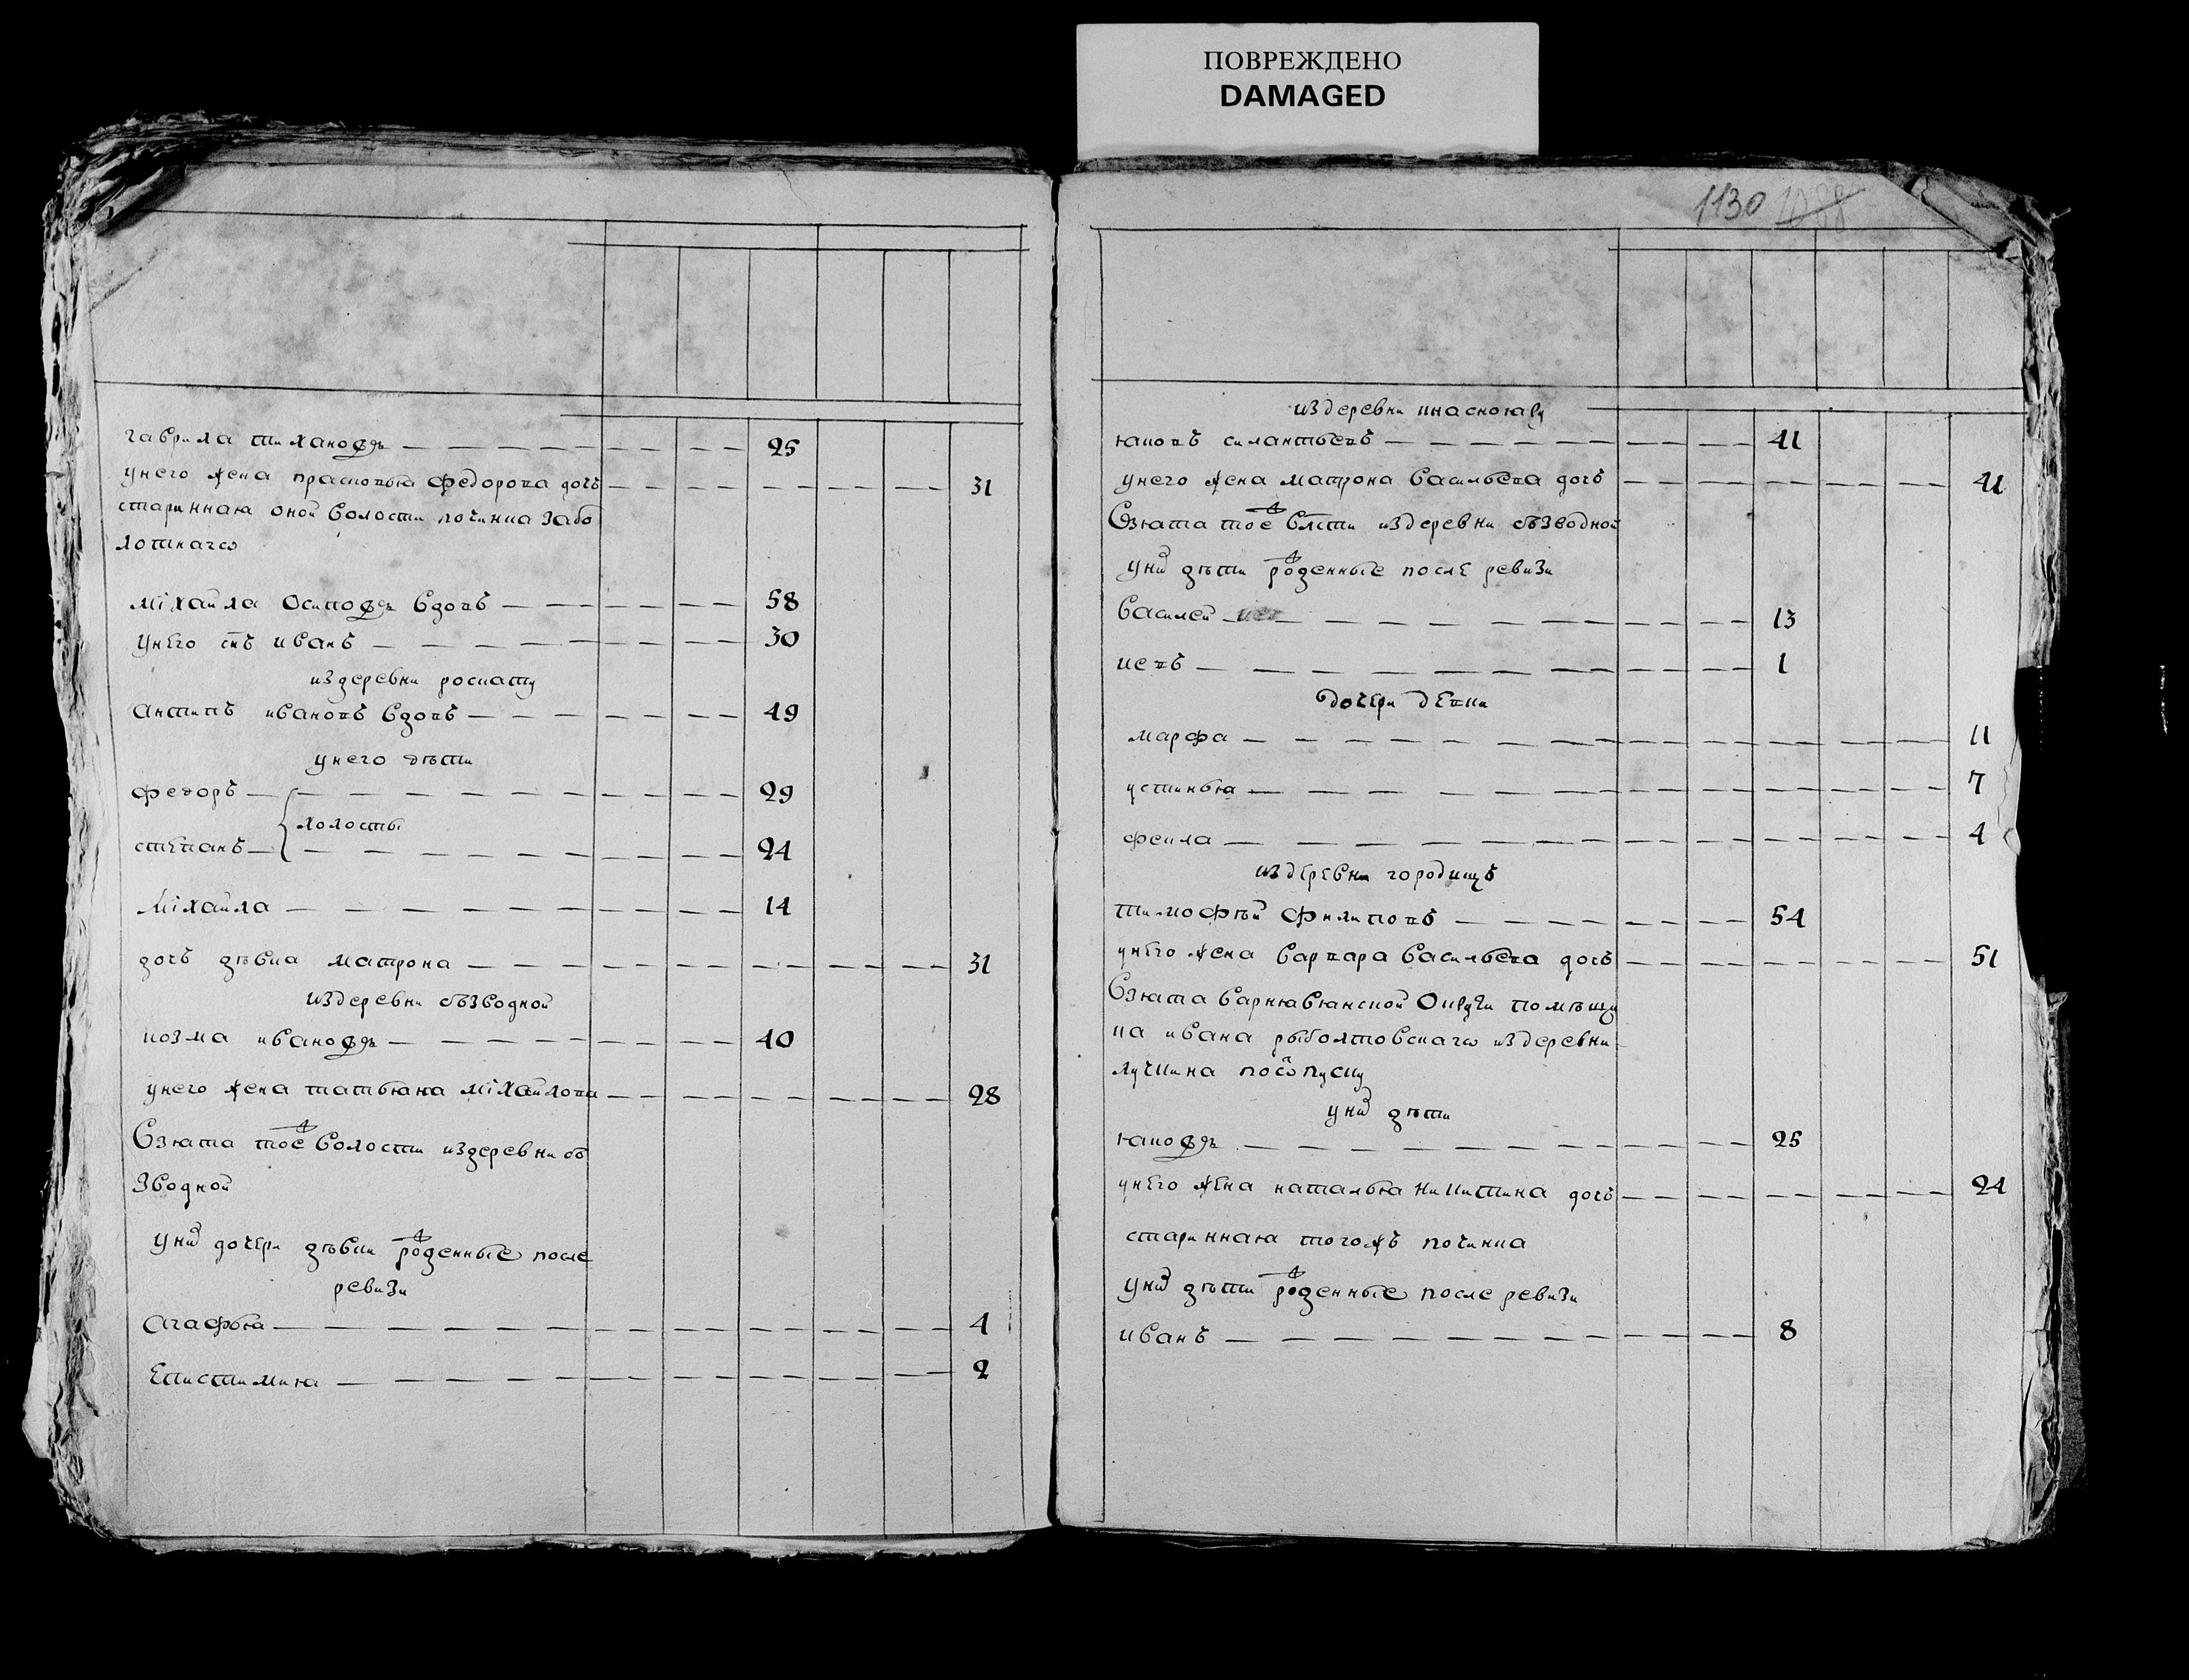 ПОВРЕЖДЕНО
DAMAGED
гаврила тихановъ 25
унего жена прасковья федорова дочь 31
стариннаю оной волости починка забо
лотнагѡ
міхаила осиповъ вдовъ 58
унего снъ иванъ 30
антипъ ивановъ вдовъ 49
унего дѣти
федоръ 29
холосты
степанъ 24
міхаила 14
дочь дѣвка матрона 31
издеревни объзводной
козма ивановъ 40
унего жена татьяна міхаилова 28
взюта тоеж волости издеревни объ
зводной
уних дочери дѣвки рожденные после
ревизи
агафья 4
епистимию 2
1130 1088
издеревни
яковъ силантьевъ 41
унего жена матрона васильева дочь 41
взюта тоеж влсти издеревни объзводной
уних дѣти рожденные после ревизи
василей 13
13
1
дочери девки
марфа 11
устинья 7
фекла 4
издеревни городищъ
тимофѣй филиповъ 54
унего жена варвара васильева дочь 51
взюта варнавюнской округи помѣщи
ка ивана издеревни
лучкина поотпуску
уних дѣти
яковъ 25
унего жена наталья никитина дочь 24
стариннаю тогожъ починка
уних дѣти рожденные после ревизи
иванъ 8